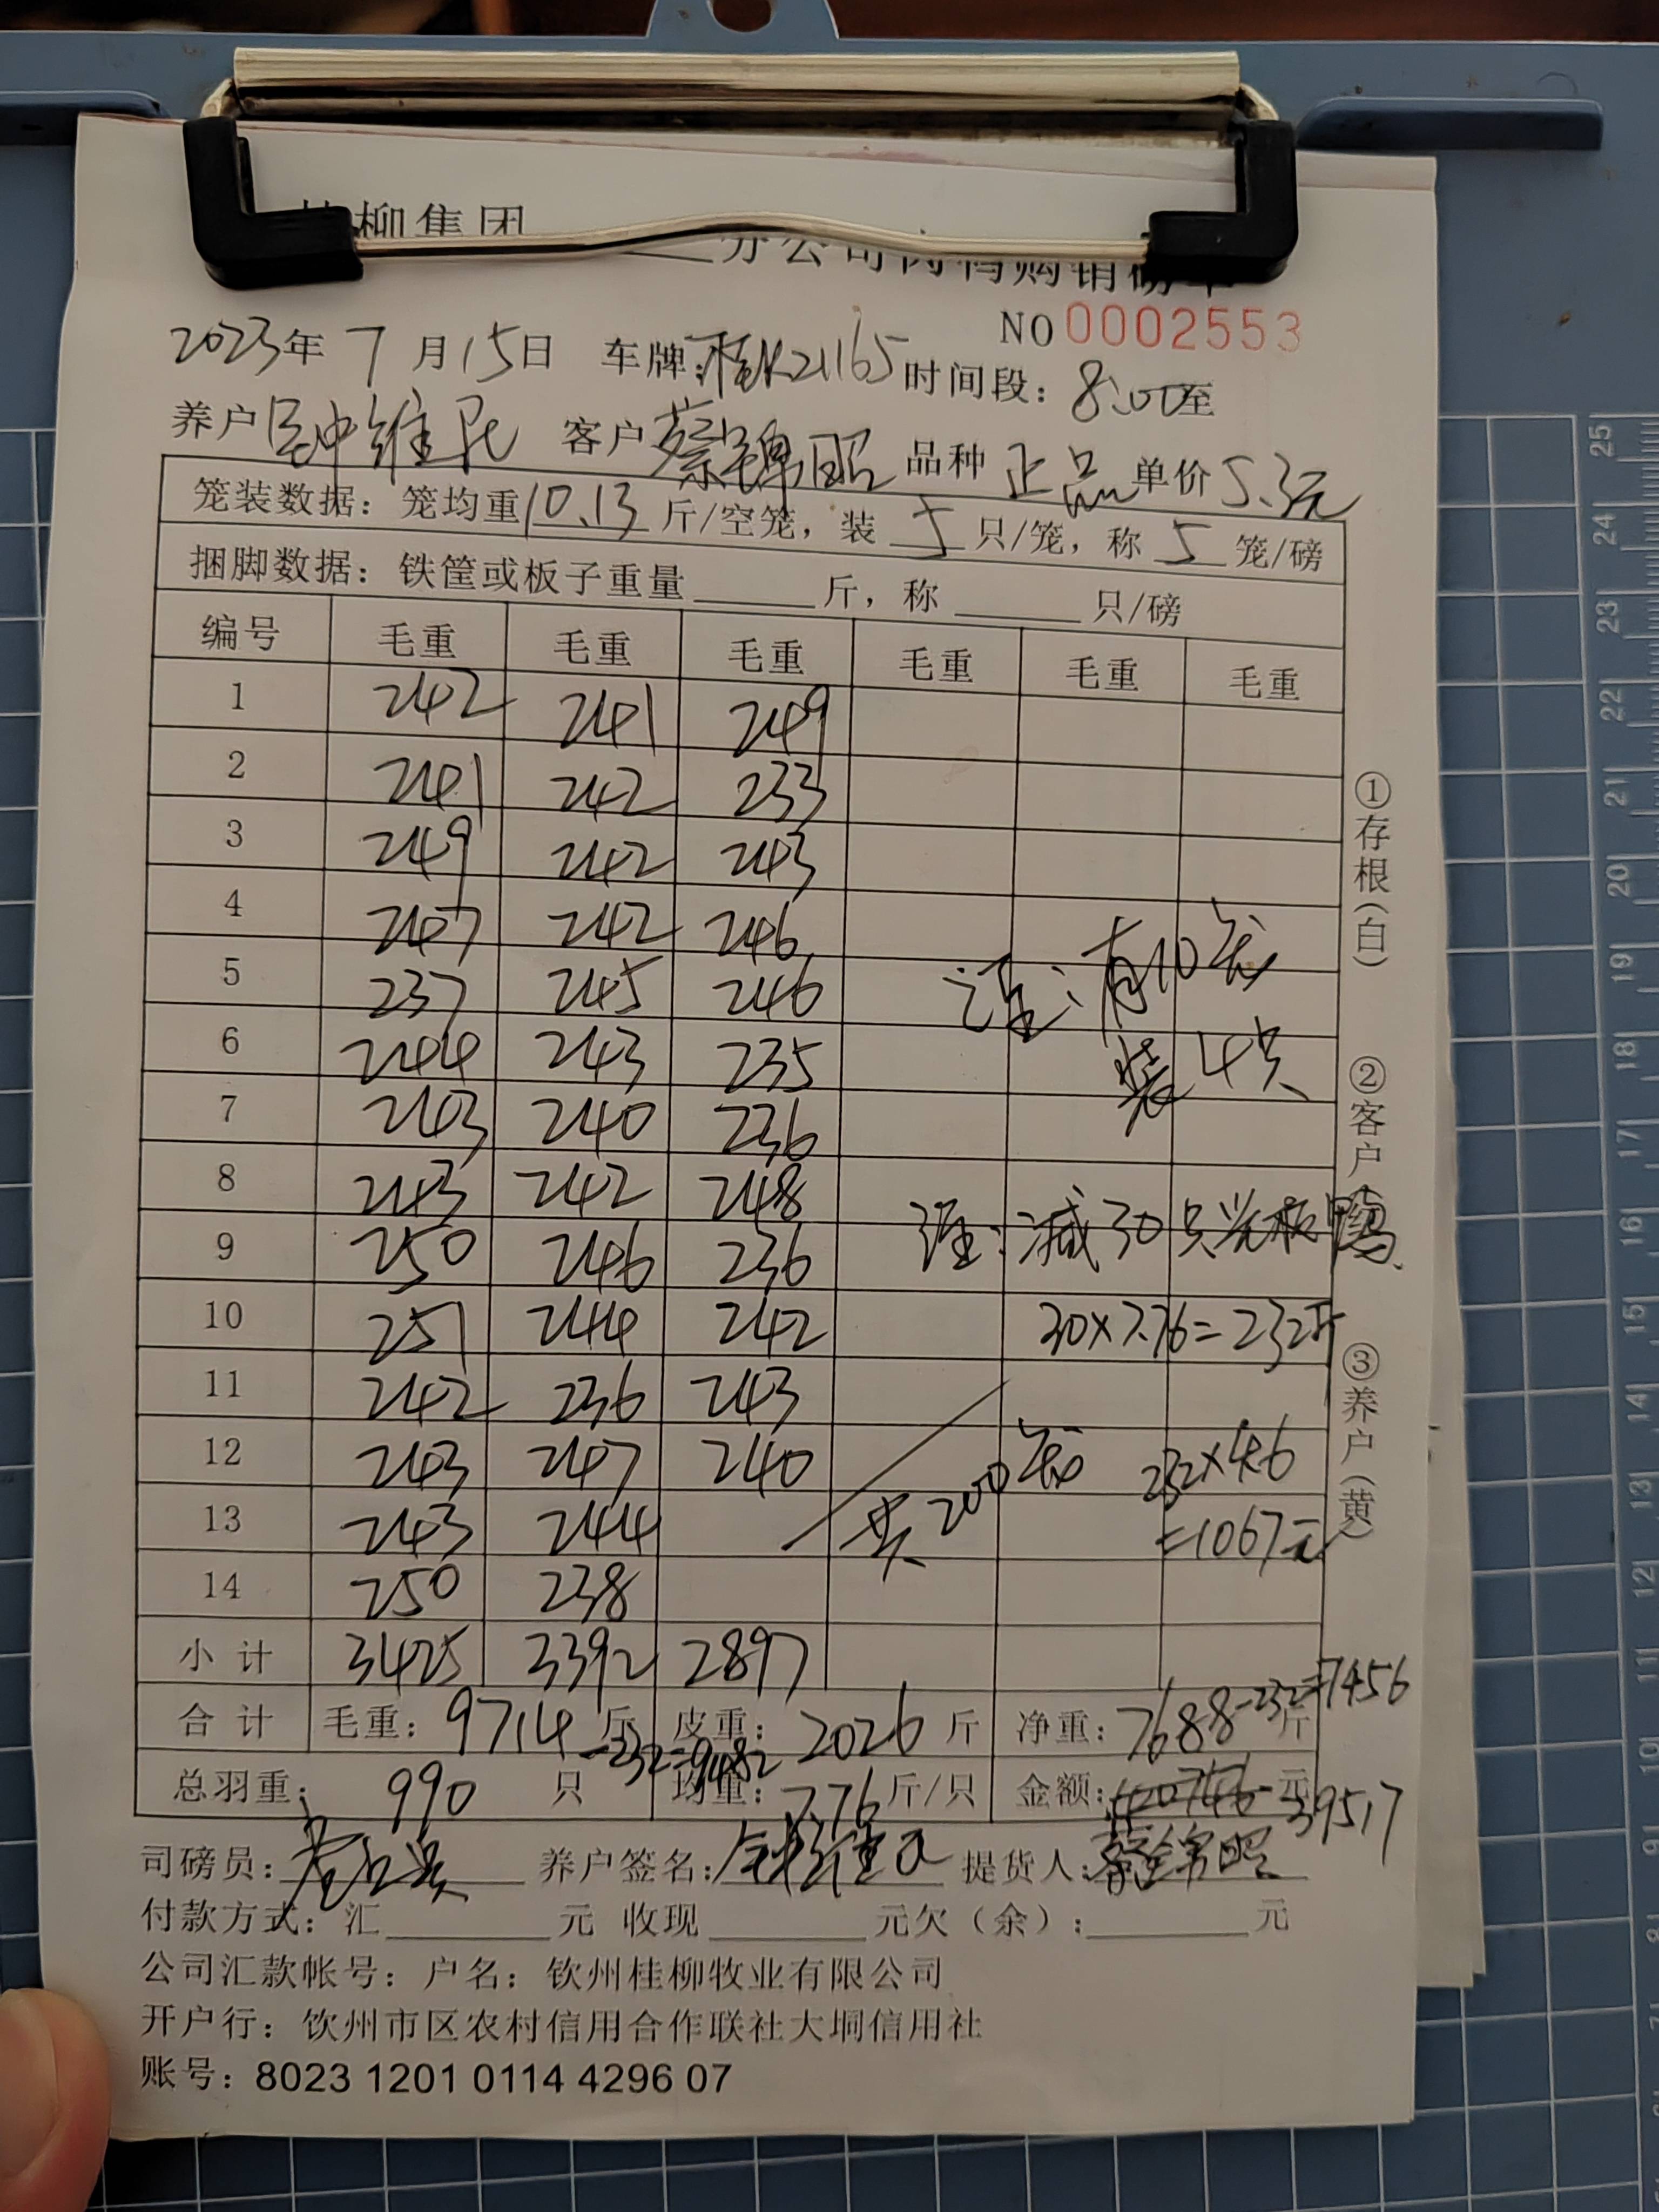 柳集团 分公司肉鸭购销磅单
NO 0002553
2023年 7 月 15日 车牌:桂K21165 时间段: 8:00至
养户 钟维民 客户 蔡锦昭 品种 正品 单价 5.3元
笼装数据: 笼均重 10.13 斤/空笼, 装 5 只/笼, 称 5 笼/磅
捆脚数据: 铁筐或板子重量 斤, 称 只/磅
编号 毛重 毛重 毛重 毛重 毛重 毛重
1 242 241 249
2 241 242 233
3 249 242 243
4 247 242 246
5 237 245 246
注: 有10笼
6 244 243 235
装4只
7 243 240 236
8 243 242 248
注: 减30只光板鸭
9 250 246 236
10 251 244 242
30×7.76=232斤
11 242 236 243
12 243 247 240
共200笼 232×4.6
13 243 244
=1067元
14 250 238
小计 3425 3392 2897
合计 毛重: 9714 斤 -232=9482 皮重: 2026 斤 净重: 7688 斤 -232=7456
总羽重: 990 只 均重: 7.76 斤/只 金额: 元 39517
司磅员: 养户签名: 钟维民 提货人: 蔡锦昭
付款方式: 汇 元 收现 元欠(余): 元
公司汇款帐号: 户名: 钦州桂柳牧业有限公司
开户行: 钦州市区农村信用合作联社大垌信用社
账号: 8023 1201 0114 4296 07
①存根(白) ②客户 ③养户(黄)
25
24
23
22
21
20
19
18
17
16
15
14
13
12
11
10